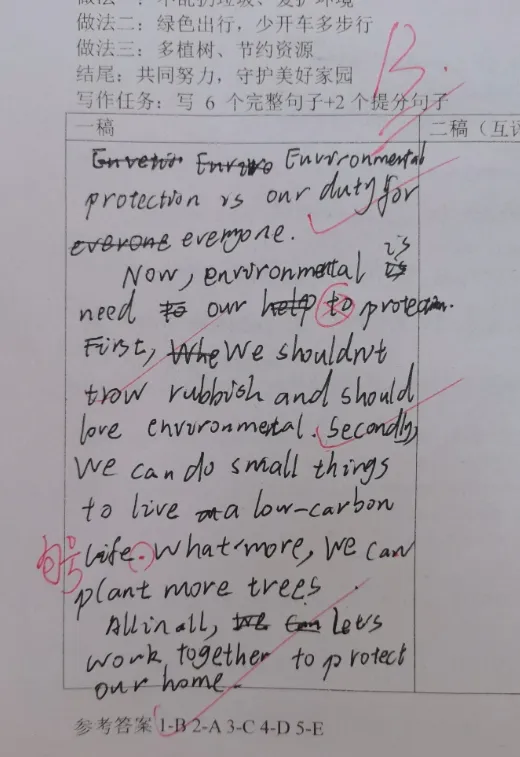 做法一：不乱扔垃圾、爱护环境
做法二：绿色出行，少开车多步行
做法三：多植树、节约资源
结尾：共同努力，守护美好家园
写作任务：写 6 个完整句子+2 个提分句子
13
一稿
二稿（互评
Environmental
protection is our duty for
everone everyone.
Now, environmental is
need to our help to protection.
First, We shouldn't
trow rubbish and should
love environmental. Secondly,
We can do small things
to live a low-carbon
life. What more, We can
句号
plant more trees.
All in all, We can Let's
work together to protect
our home.
参考答案 1-B 2-A 3-C 4-D 5-E